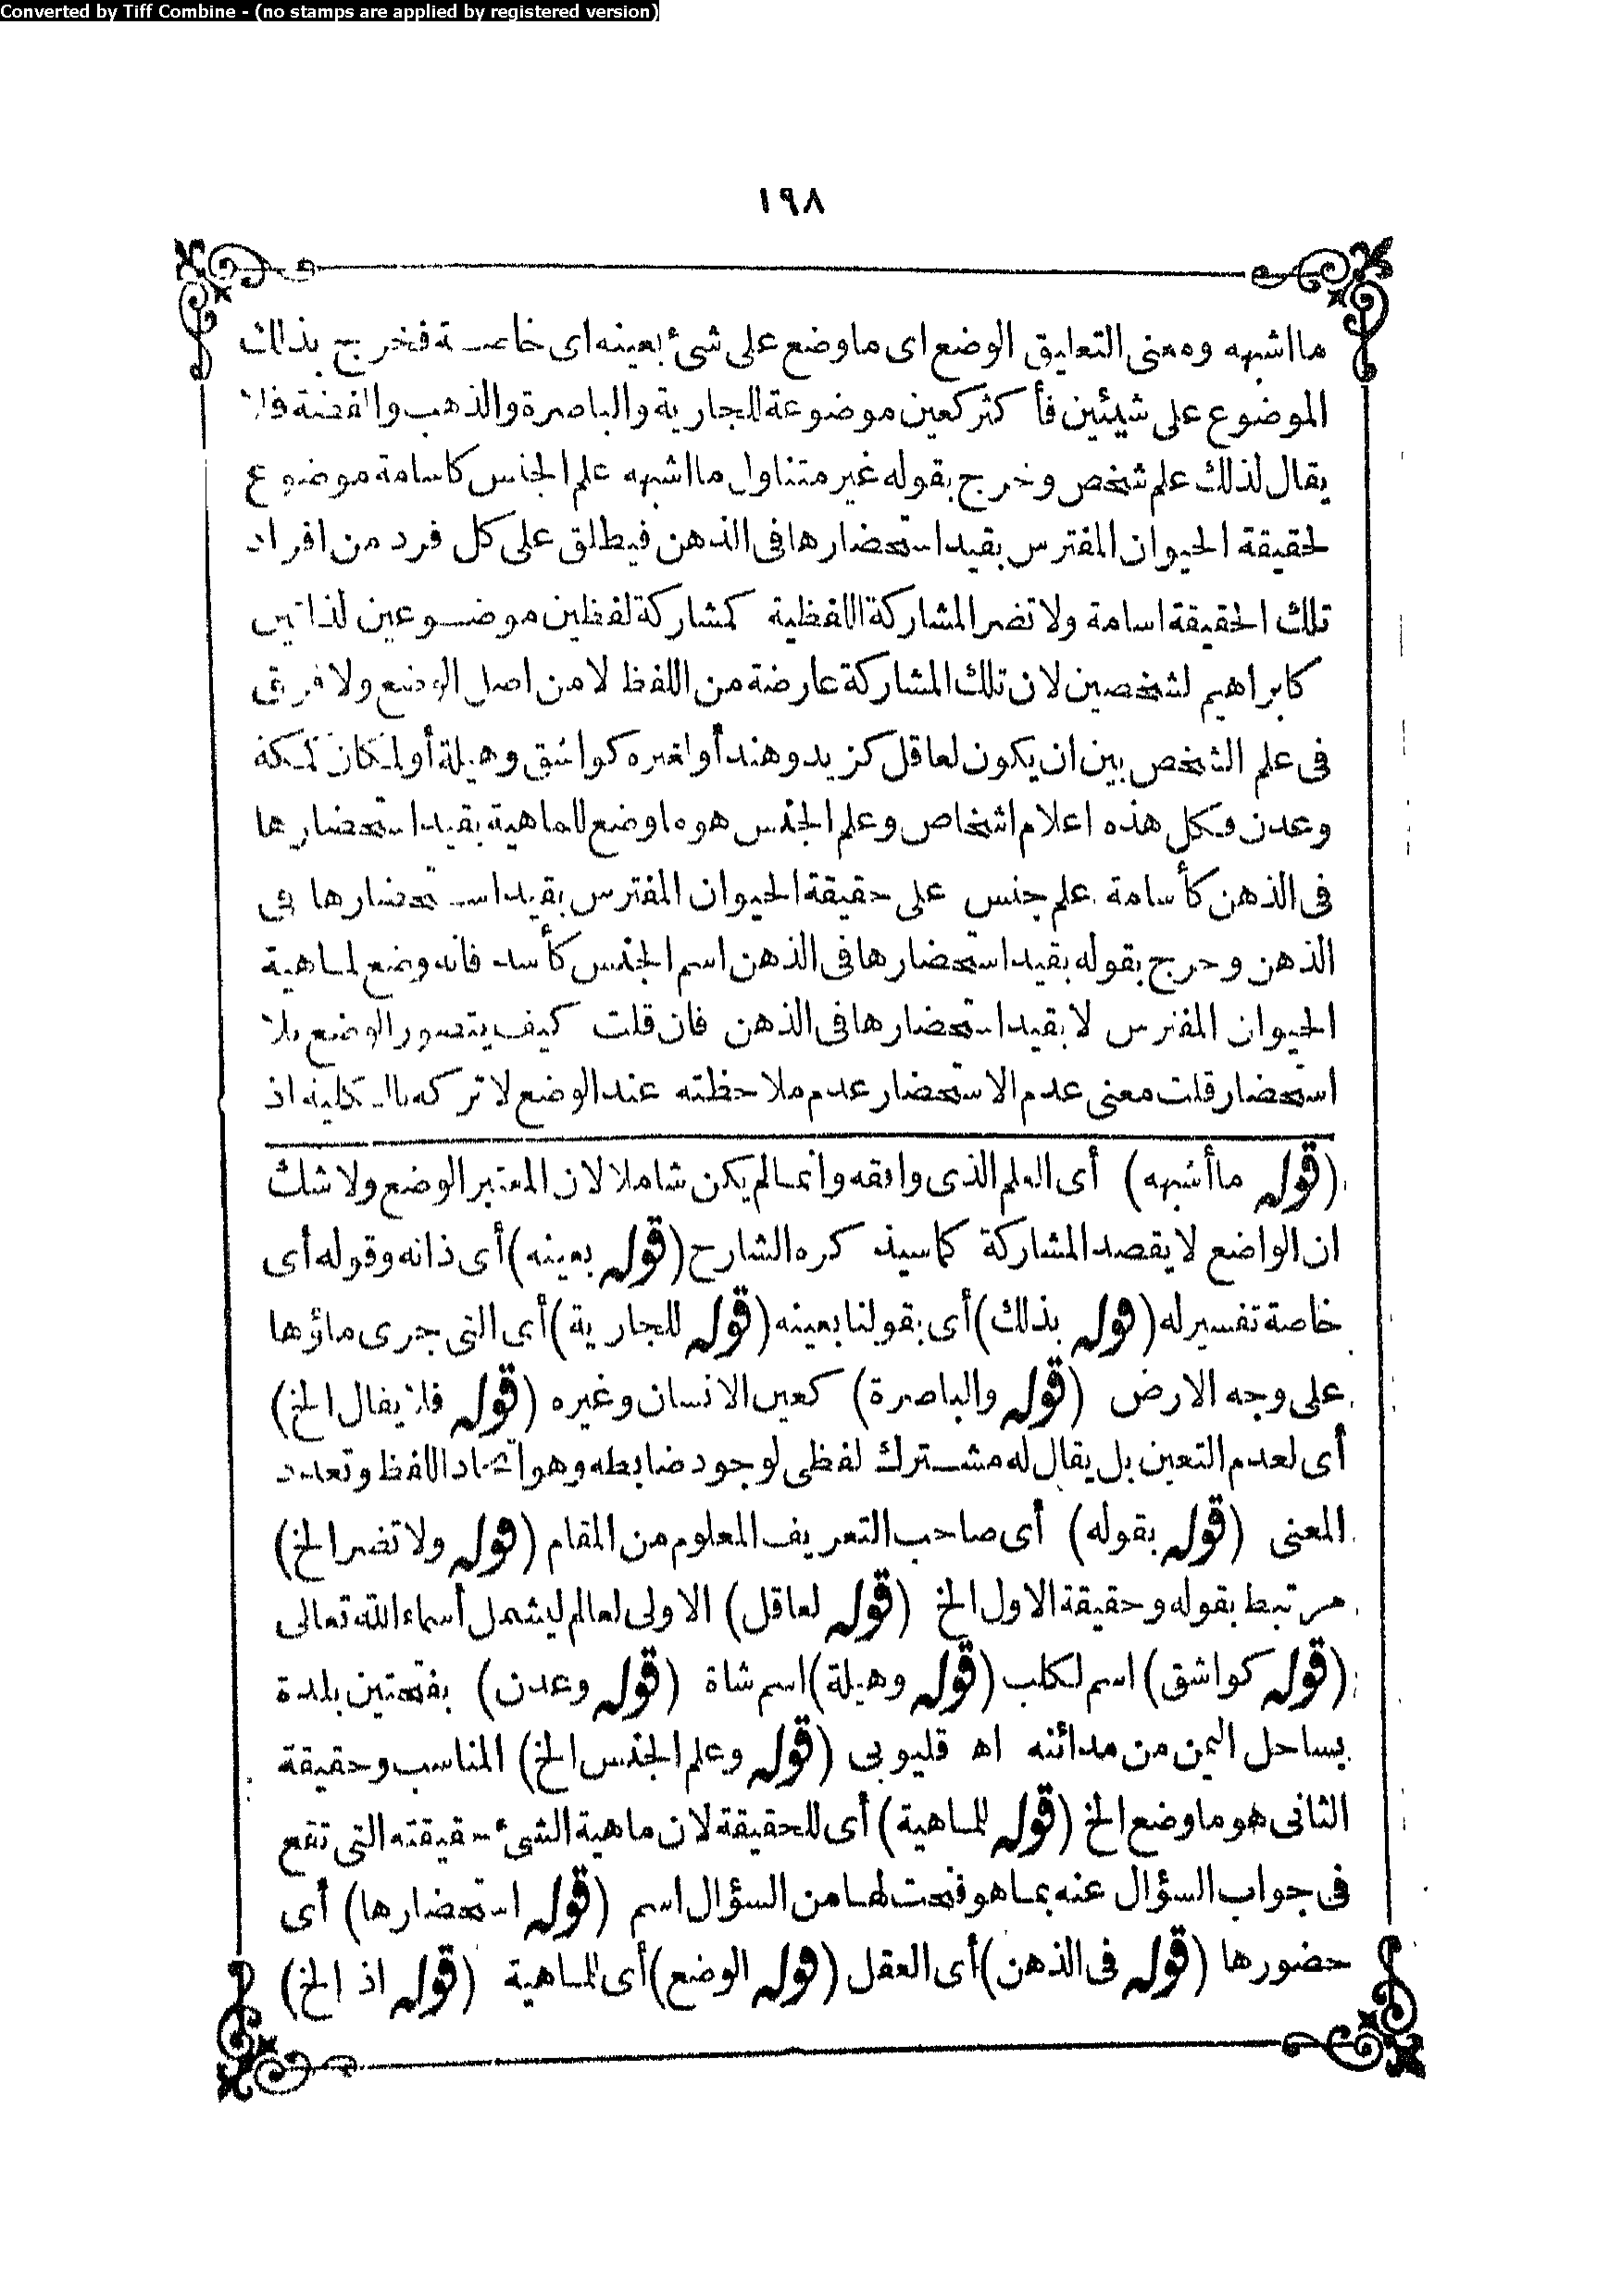 Converted by Tiff Combine - (no stamps are applied by registered version)
١٩٨
ما اشبهه ومعنى التعليق الوضع اى ما وضع على شئ بعينه اى خاصة فخرج بذلك
الموضوع على شيئين فأكثر كعين موضوعة للجارية والباصرة والذهب والفضة فلا
يقال لذلك علم شخص وخرج بقوله غير متناول ما اشبهه علم الجنس كاسامة موضوع
لحقيقة الحيوان المفترس بقيد استحضارها فى الذهن فيطلق على كل فرد من افراد
تلك الحقيقة اسامة ولا تضر المشاركة اللفظية كمشاركة لفظين موضوعين لذاتين
كابراهيم لشخصين لان تلك المشاركة عارضة من اللفظ لا من اصل الوضع ولا فرق
فى علم الشخص بين ان يكون لعاقل كزيد وهند أو لغيره كواشق وهيلة أو لمكان كمكة
وعدن فكل هذه اعلام اشخاص وعلم الجنس هو ما وضع للماهية بقيد استحضارها
فى الذهن كأسامة علم جنس على حقيقة الحيوان المفترس بقيد استحضارها فى
الذهن وخرج بقوله بقيد استحضارها فى الذهن اسم الجنس كأسد فانه وضع لماهية
الحيوان المفترس لا بقيد استحضارها فى الذهن فان قلت كيف يتصور الوضع بلا
استحضار قلت معنى عدم الاستحضار عدم ملاحظته عند الوضع لا تركه بالكلية اذ
(قوله ما أشبهه) أى العلم الذى وافقه وانما لم يكن شاملا لان المعتبر الوضع ولا شك
ان الواضع لا يقصد المشاركة كما سيذكره الشارح (قوله بعينه) أى ذاته وقوله أى
خاصة تفسير له (قوله بذلك) أى بقولنا بعينه (قوله للجارية) أى التى جرى ماؤها
على وجه الارض (قوله والباصرة) كعين الانسان وغيره (قوله فلا يقال الخ)
أى لعدم التعين بل يقال له مشترك لفظى لوجود ضابطه وهو اتحاد اللفظ وتعدد
المعنى (قوله بقوله) أى صاحب التعريف المعلوم من المقام (قوله ولا تضر الخ)
مرتبط بقوله وحقيقة الاول الخ (قوله لعاقل) الاولى لعالم ليشمل أسماء الله تعالى
(قوله كواشق) اسم لكلب (قوله وهيلة) اسم شاة (قوله وعدن) بفتحتين بلدة
بساحل اليمن من مدائنه اه قليوبى (قوله وعلم الجنس الخ) المناسب وحقيقة
الثانى هو ما وضع الخ (قوله للماهية) أى للحقيقة لان ماهية الشئ حقيقته التى تقع
فى جواب السؤال عنه بما هو فنحت لها من السؤال اسم (قوله استحضارها) أى
حضورها (قوله فى الذهن) أى العقل (قوله الوضع) أى للماهية (قوله اذ الخ)